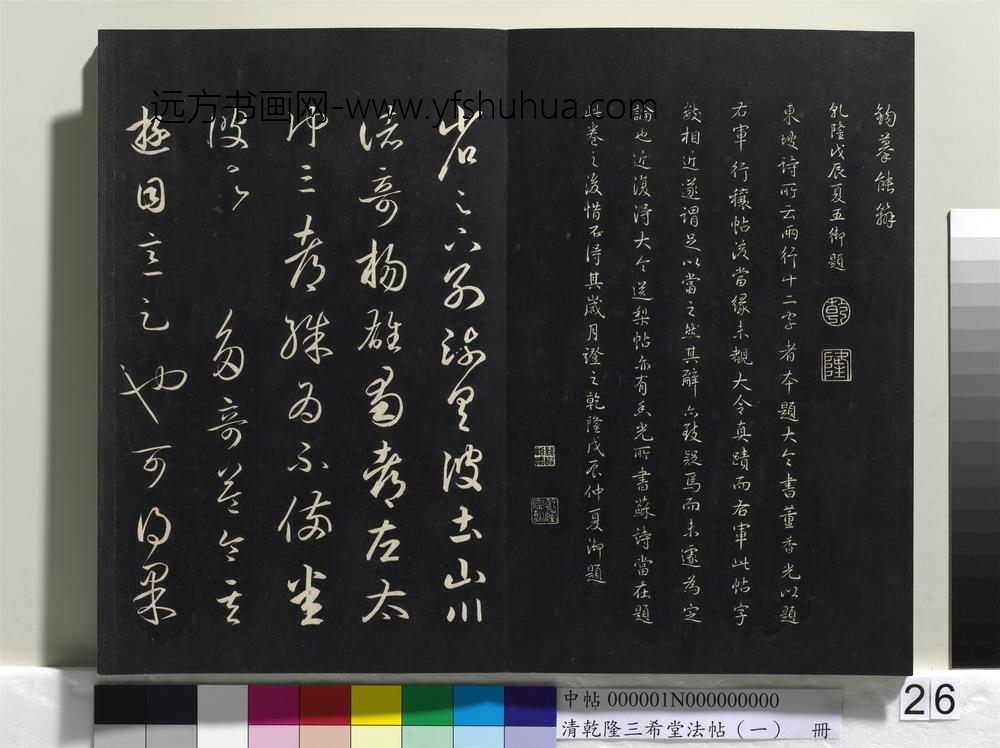 鈎摹能辦
乾隆戊辰夏五御題
乾
隆
東坡詩所云兩行十二字者本題大令書董香光以題
右軍行穰帖後當緣未覩大令真蹟而右軍此帖字
數相近遂謂足以當之然其辭亦致疑焉而未遽為定
論也近復得大令送梨帖亦有香光所書蘇詩當在題
此卷之後惜不得其歲月證之乾隆戊辰仲夏御題
省足下別疏具彼土山川
諸奇楊雄蜀都左太
沖三都殊為不備悉
彼故多奇益令其
遊目意足也可得果
远方书画网-www.yfshuhua.com
中帖 000001N000000000
清乾隆三希堂法帖（一） 冊
26